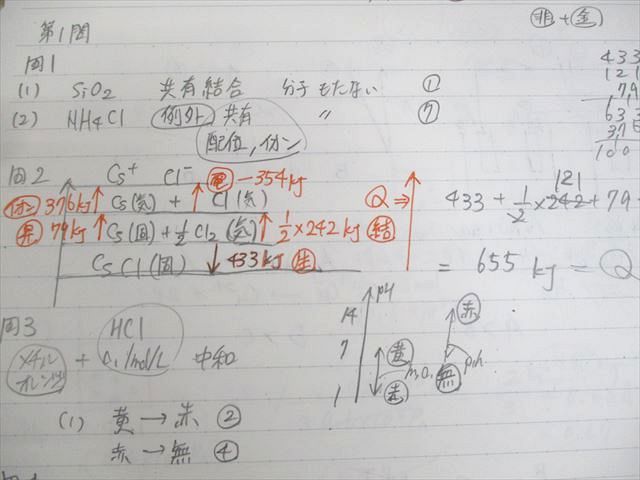 非 + 金
第1問
問1
(1) SiO2 共有結合 分子もたない ①
(2) NH4Cl 例外 共有 〃 ⑦
配位,イオン
433
121
79
633
376
問2
Cs+ Cl- 電 -354kJ
イオン 376kJ Cs(気) + Cl(気)
昇 79kJ Cs(固) + 1/2 Cl2(気) 1/2×242kJ 結
CsCl(固) 433kJ 生
Q ⇒
121
433 + 1/2×242 + 79
= 655 kJ = Q
問3
メチルオレンジ + HCl 0.1mol/L 中和
pH
14
7
1
黄
赤
M.O.
赤
無
p.h
(1) 黄 → 赤 ②
赤 → 無 ④